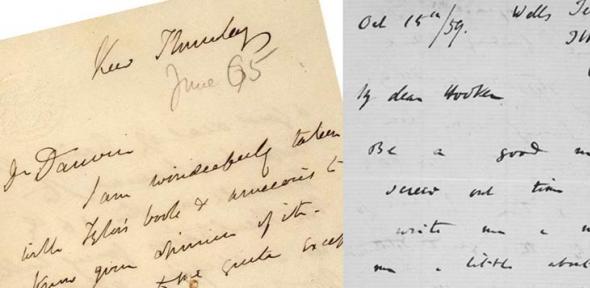 Kew Thursday
June 65
Dr Darwin
I am wonderfully taken
with Tylor's book & anxious to
know your opinion of it.
the quite except
Oct 15th/59. Wells
My dear Hooker
Be a good
screw out time
write me a
me a little about